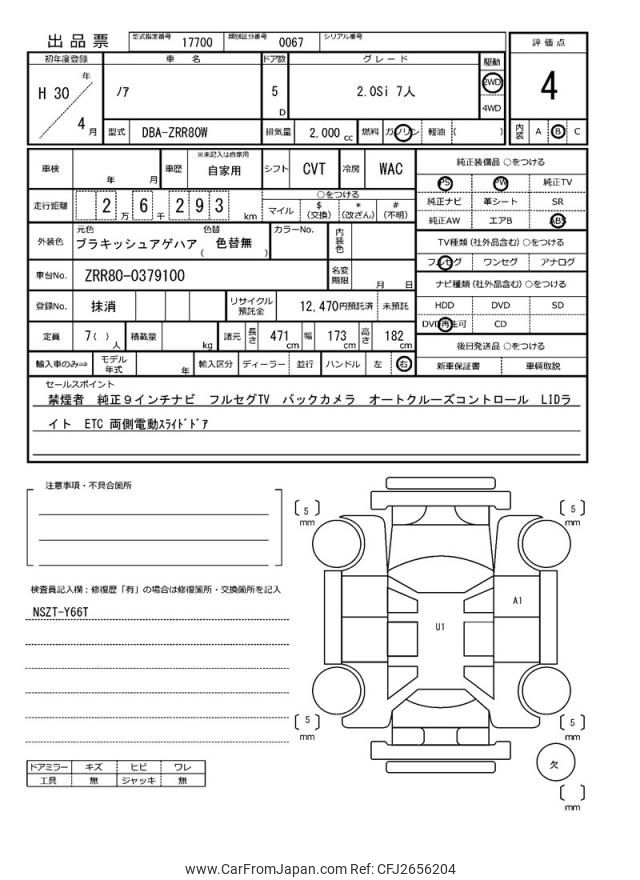 出品票 型式指定番号 17700 類別区分番号 0067 シリアル番号
評価点
初年度登録 車名 ドア数 グレード 駆動
H 30 年 4 月 ノア 5 D 2.0Si 7人 2WD 4WD
4
型式 DBA-ZRR80W 排気量 2,000 cc 燃料 ガソリン 軽油 ( )
内装 A B C
車検 年 月 車歴 ※未記入は自家用 自家用 シフト CVT 冷房 WAC
純正装備品 ○をつける
PS PW 純正TV
走行距離 2 万 6 千 2 9 3 km
○をつける
マイル $ (交換) * (改ざん) # (不明)
純正ナビ 革シート SR
純正AW エアB ABS
外装色 元色 ブラキッシュアゲハア 色替 ( 色替無 ) カラーNo. 内装色
TV種類(社外品含む) ○をつける
フルセグ ワンセグ アナログ
車台No. ZRR80-0379100 名変期限 月 日
ナビ種類(社外品含む) ○をつける
登録No. 抹消 リサイクル預託金 12,470円預託済 未預託
HDD DVD SD
DVD再生可 CD
定員 7( )人 積載量 kg 諸元 長さ 471 cm 幅 173 cm 高さ 182 cm
後日発送品 ○をつける
輸入車のみ⇒ モデル年式 年 輸入区分 ディーラー 並行 ハンドル 左 右
新車保証書 車輌取説
セールスポイント
禁煙者 純正９インチナビ フルセグTV バックカメラ オートクルーズコントロール LIDラ
イト ETC 両側電動ｽﾗｲﾄﾞﾄﾞｱ
注意事項・不具合箇所
[ 5 ] mm
[ 5 ] mm
検査員記入欄：修復歴「有」の場合は修復箇所・交換箇所を記入
NSZT-Y66T
A1
U1
[ 5 ] mm
[ 5 ] mm
欠
[ ] mm
ドアミラー キズ ヒビ ワレ
工具 無 ジャッキ 無
www.CarFromJapan.com Ref: CFJ2656204